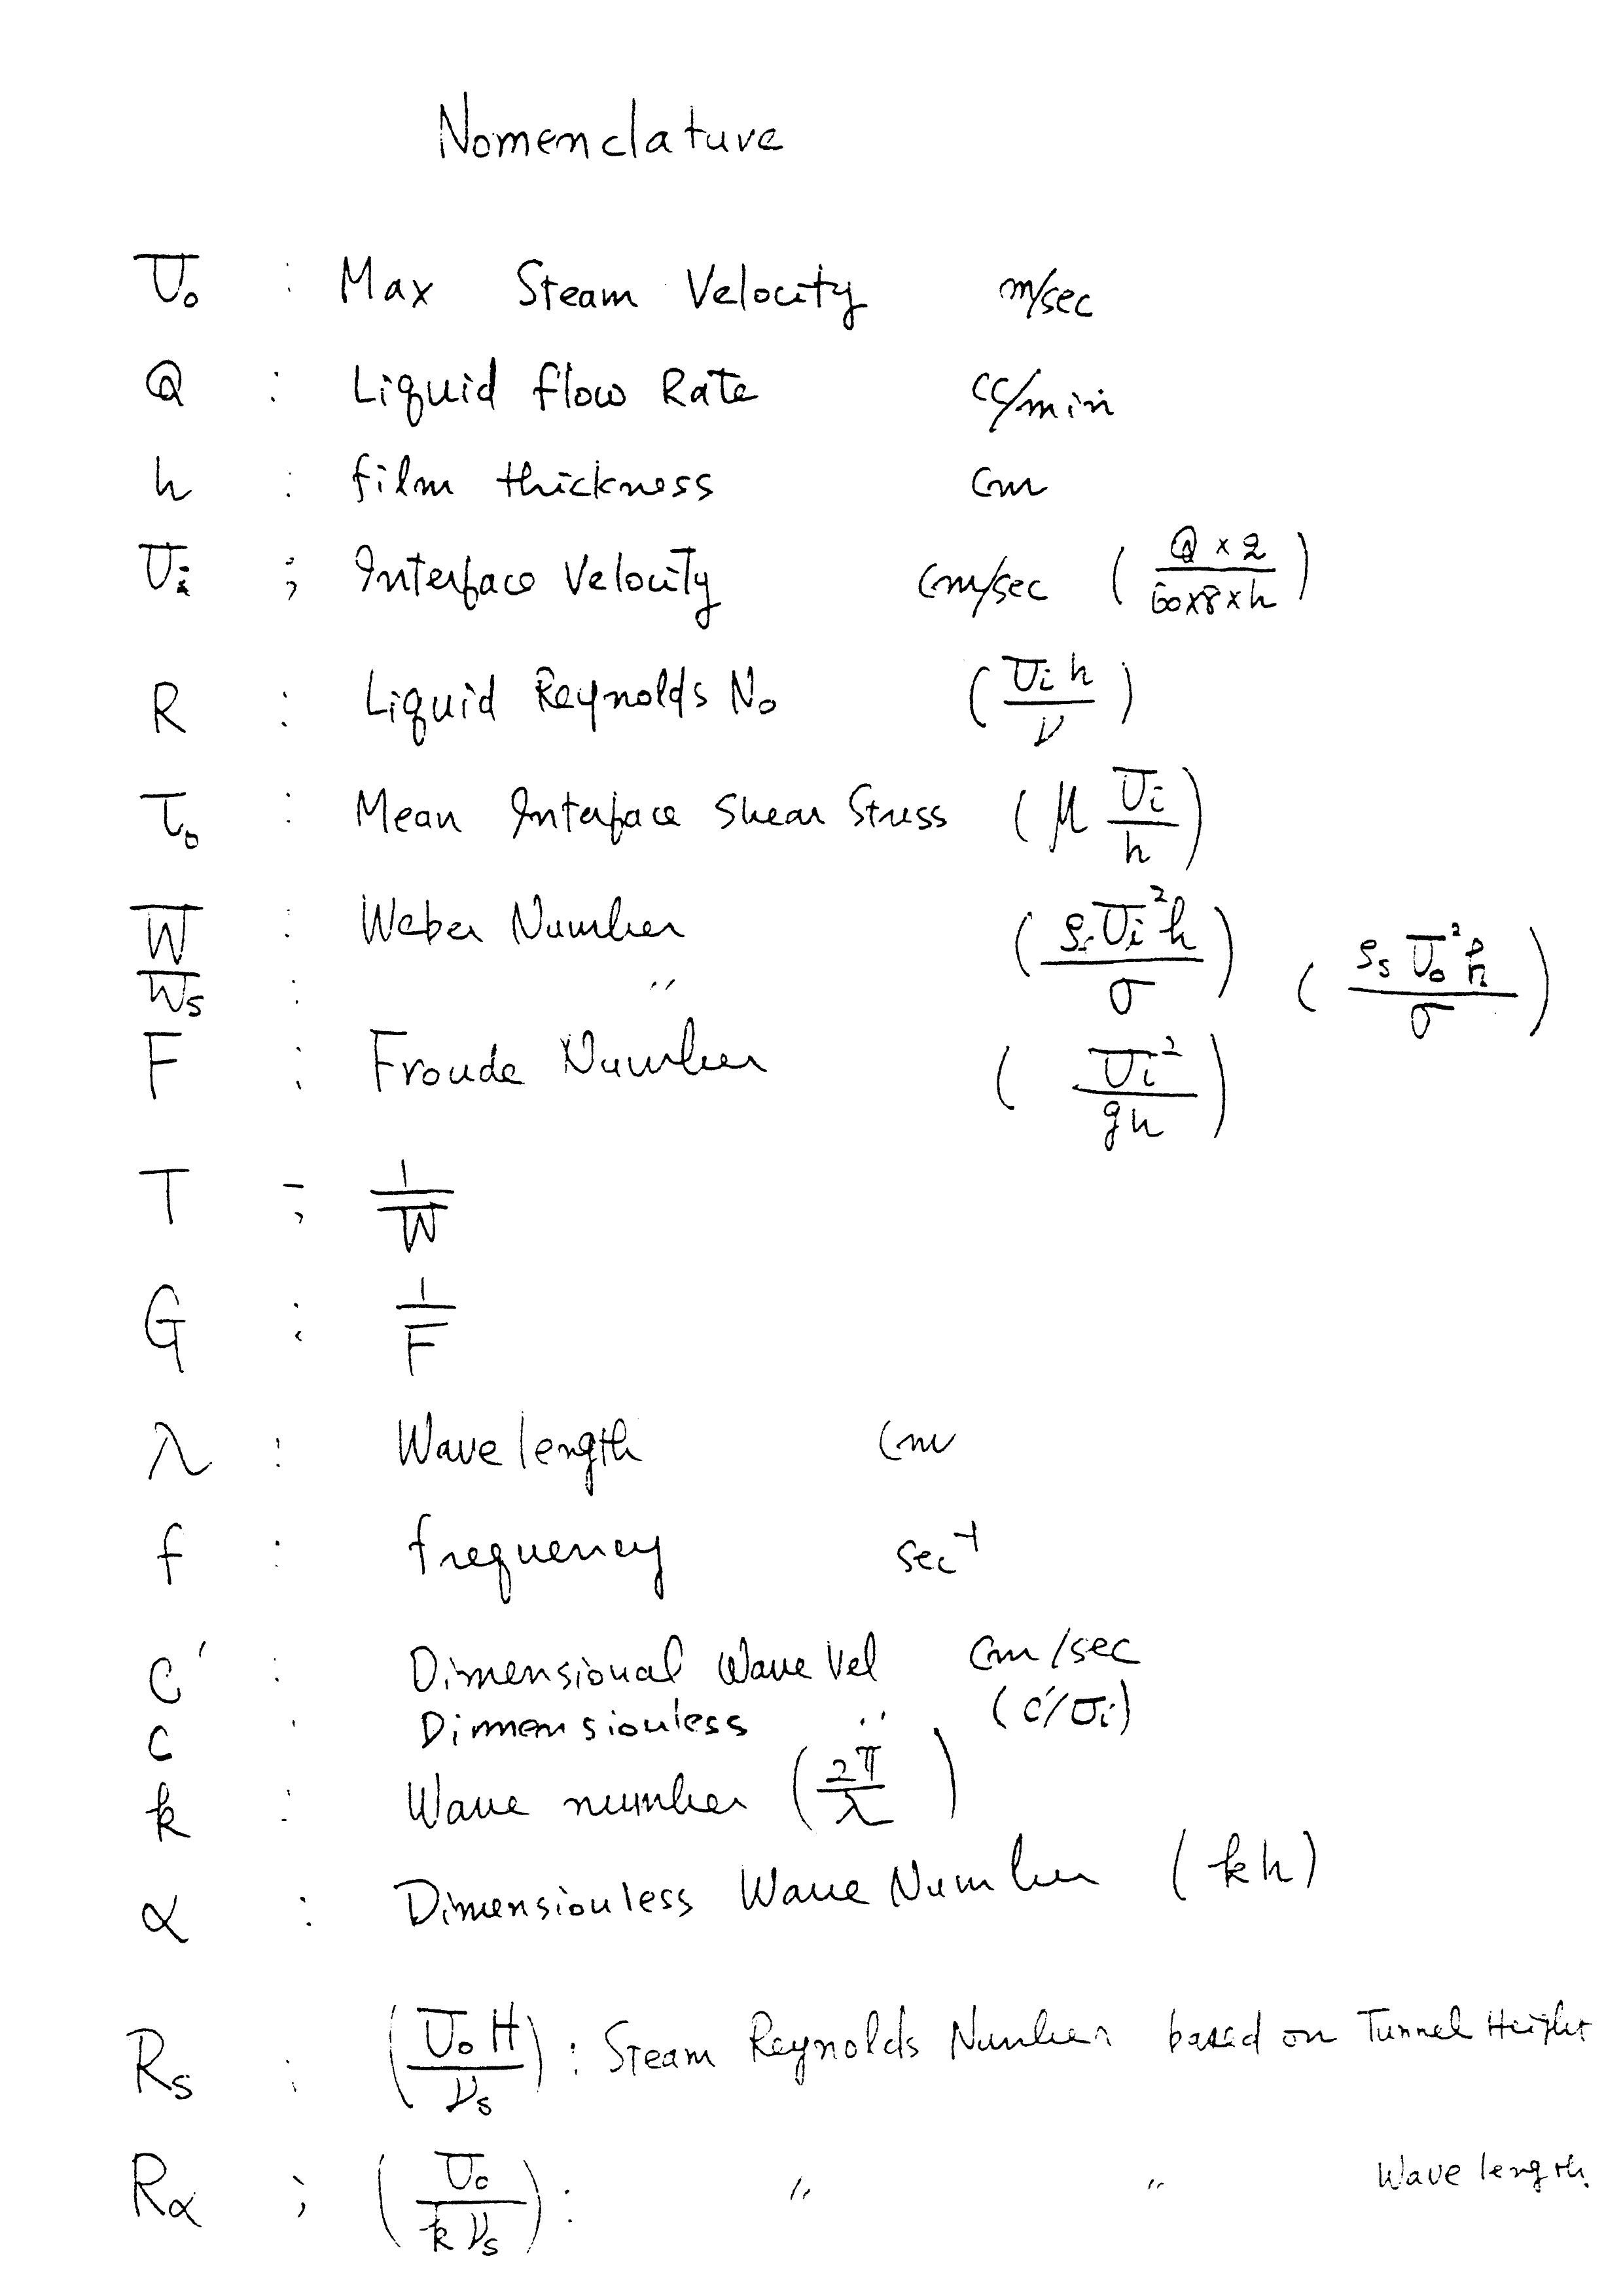 Nomenclature
U₀ : Max Steam Velocity m/sec
Q : Liquid flow Rate cc/min
h : film thickness cm
Uᵢ ; Interface Velocity cm/sec ( Q × 2 / 60×8×h )
R : Liquid Reynolds No ( Uᵢ h / ν )
τ₀ : Mean Interface Shear Stress ( μ Uᵢ / h )
W : Weber Number ( ρᵢ Uᵢ² h / σ )
Wₛ : 〃 ( ρₛ U₀² h / σ )
F : Froude Number ( Uᵢ² / gh )
T ; 1 / W
G : 1 / F
λ : Wave length cm
f : frequency sec⁻¹
C′ : Dimensional Wave Vel cm/sec
C : Dimensionless 〃 (C′/Uᵢ)
k : Wave number ( 2π / λ )
α : Dimensionless Wave Number ( kh )
Rₛ : ( U₀ H / νₛ ) : Steam Reynolds Number based on Tunnel Height
Rα ; ( U₀ / k νₛ ) : 〃 〃 Wave length.